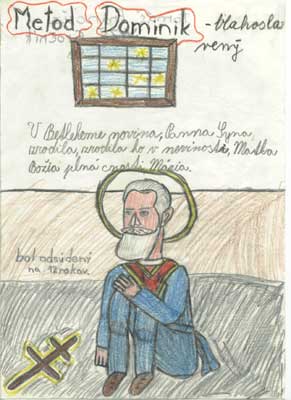 Metod Dominik - blahosla
vený
V Betleheme novina, Panna Syna
urodila, urodila ho v nevinosti, Matka
Božia plná cnosti Mária.
bol odsúdený
na 12 rokov.